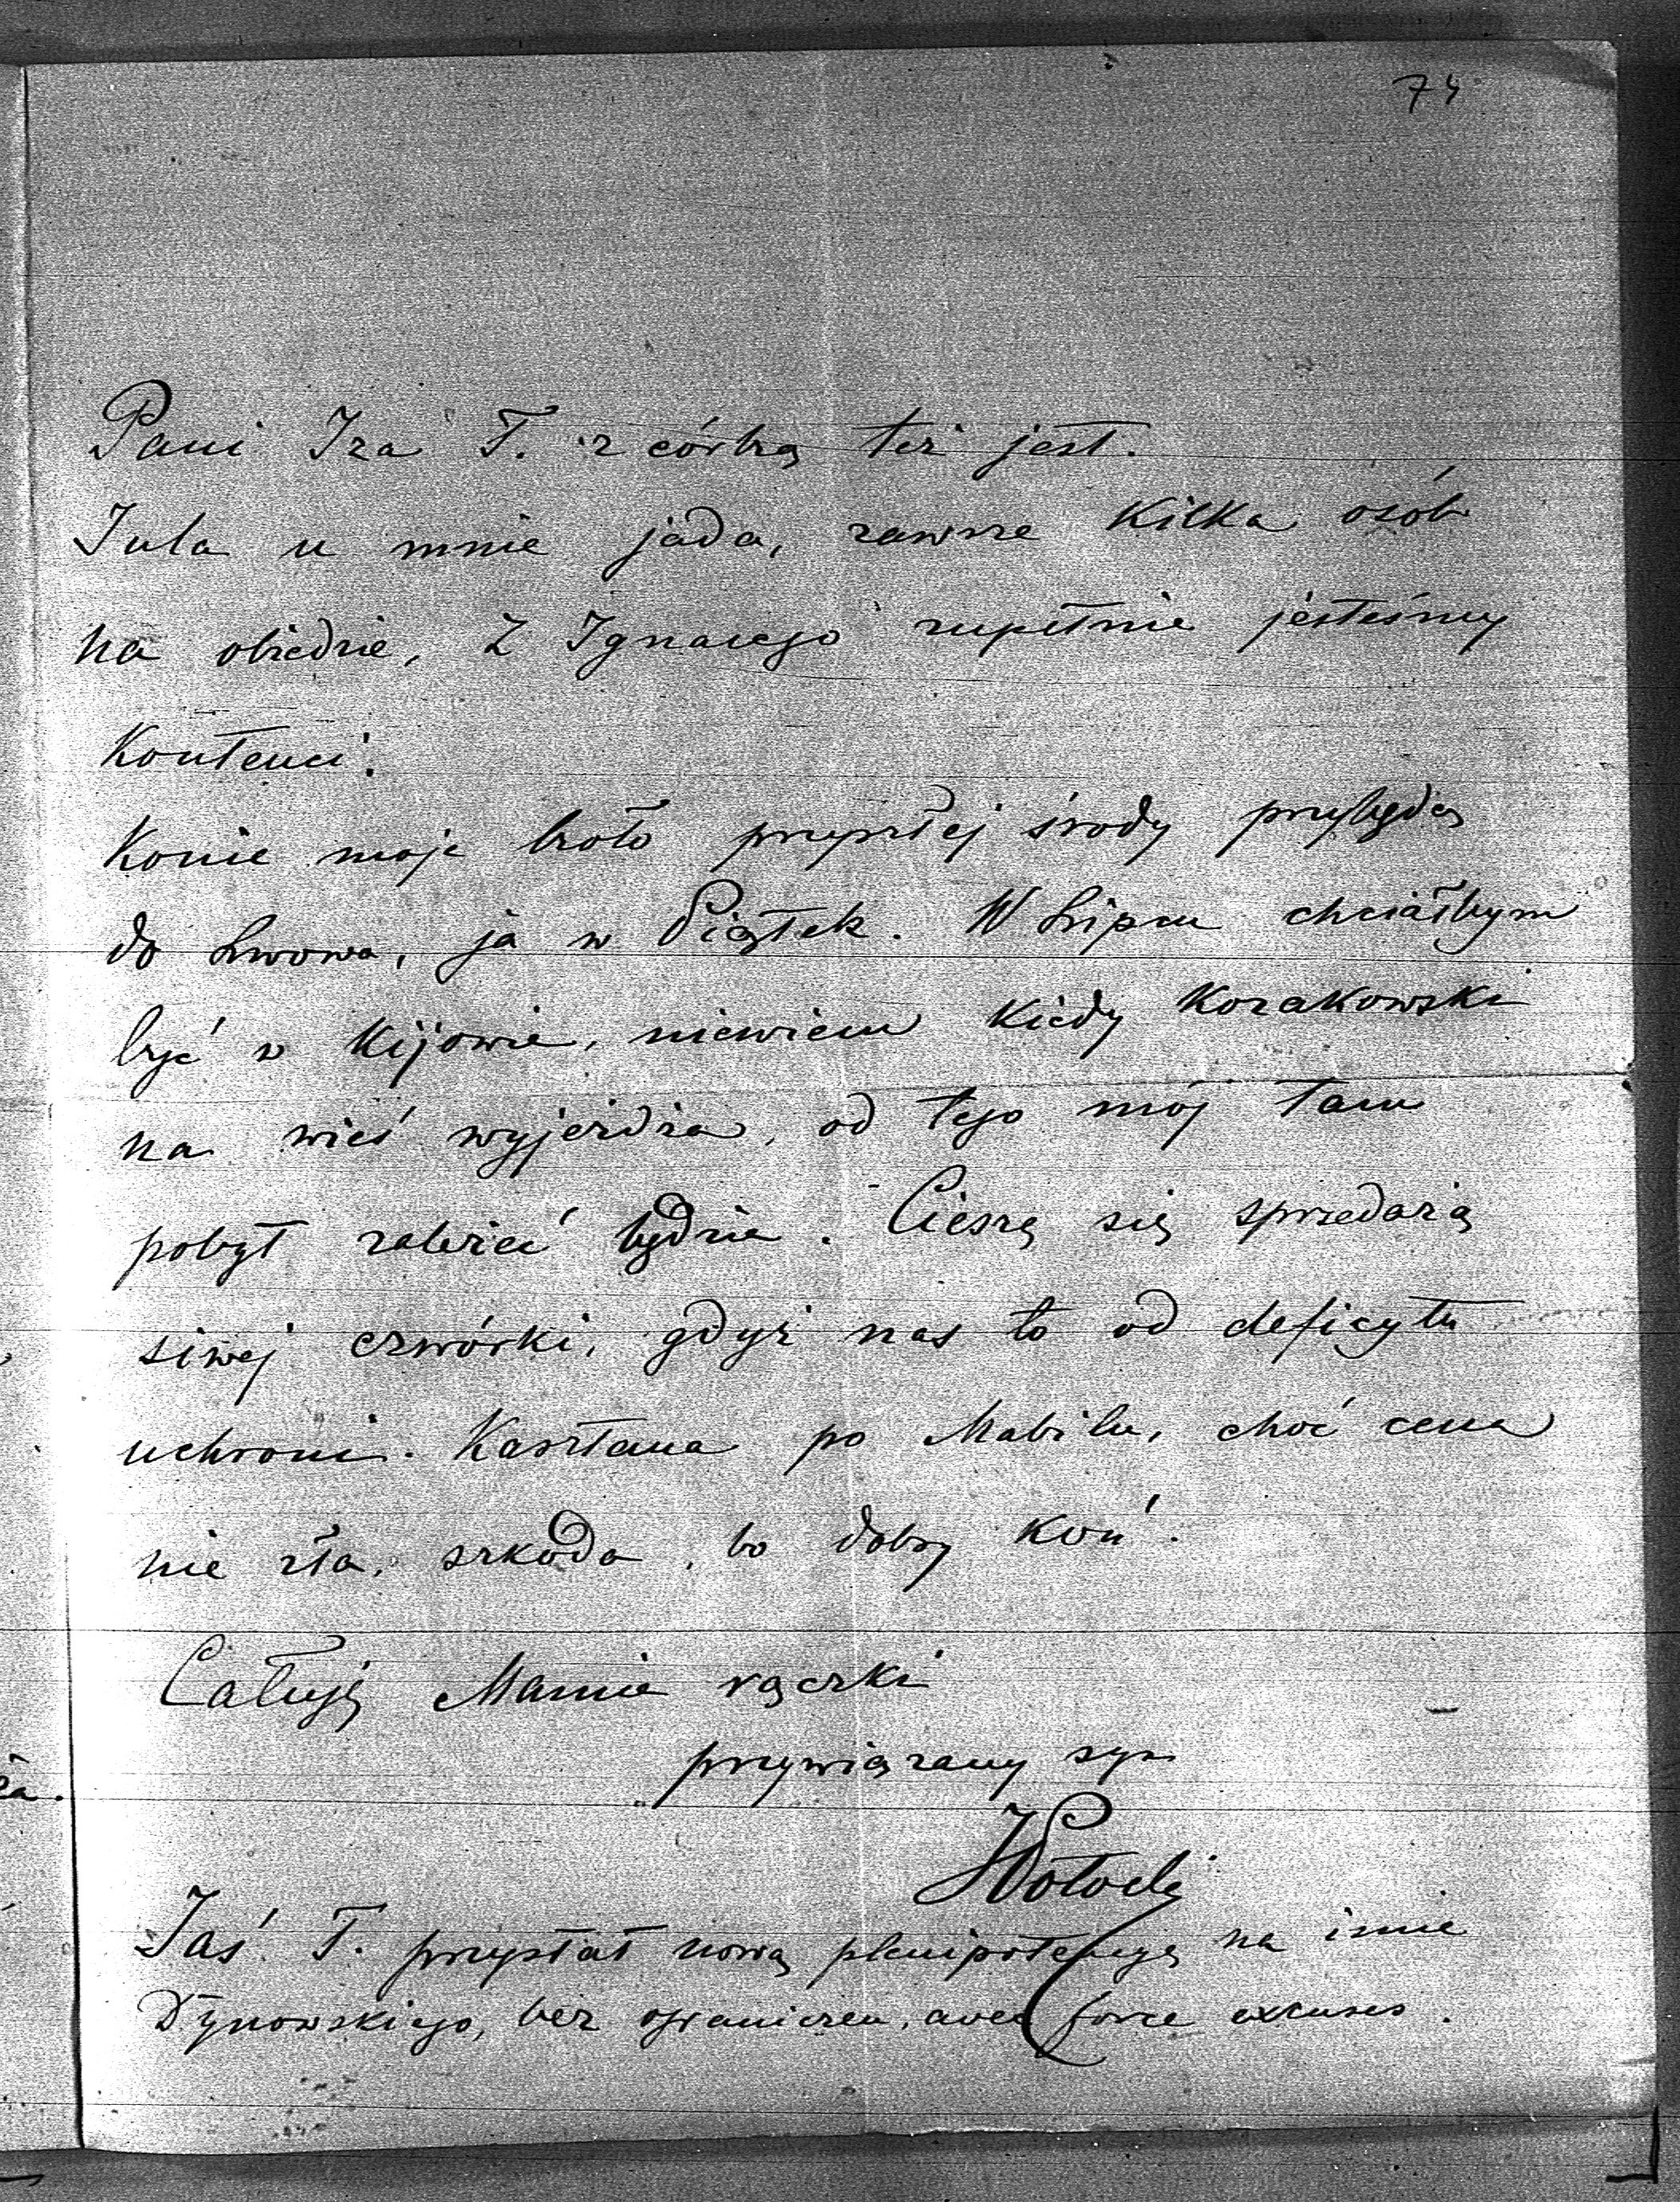 74
Pani Iza T. z córką też jest.
Jula u mnie jada, zawsze kilka osób
na obiedzie, z Ignacego zupełnie jesteśmy
kontenci.
Konie moje koło przyszłej środy przybędą
do Lwowa, ja w Piątek. W Lipcu chciałbym
być w Kijowie, niewiem kiedy Kozakowski
na wieś wyjeżdża, od tego mój tam
pobyt zależeć będzie. Cieszę się sprzedażą
siwej czwórki, gdyż nas to od deficytu
uchroni. Kasztana po Mabilu, choć cena
nie zła, szkoda, bo dobry koń.
Całuję Mamie rączki
przywiązany syn
Jaś T. przysłał nową plenipotencyę na imie
Dynowskiego, bez ograniczeń, avec force excuses.